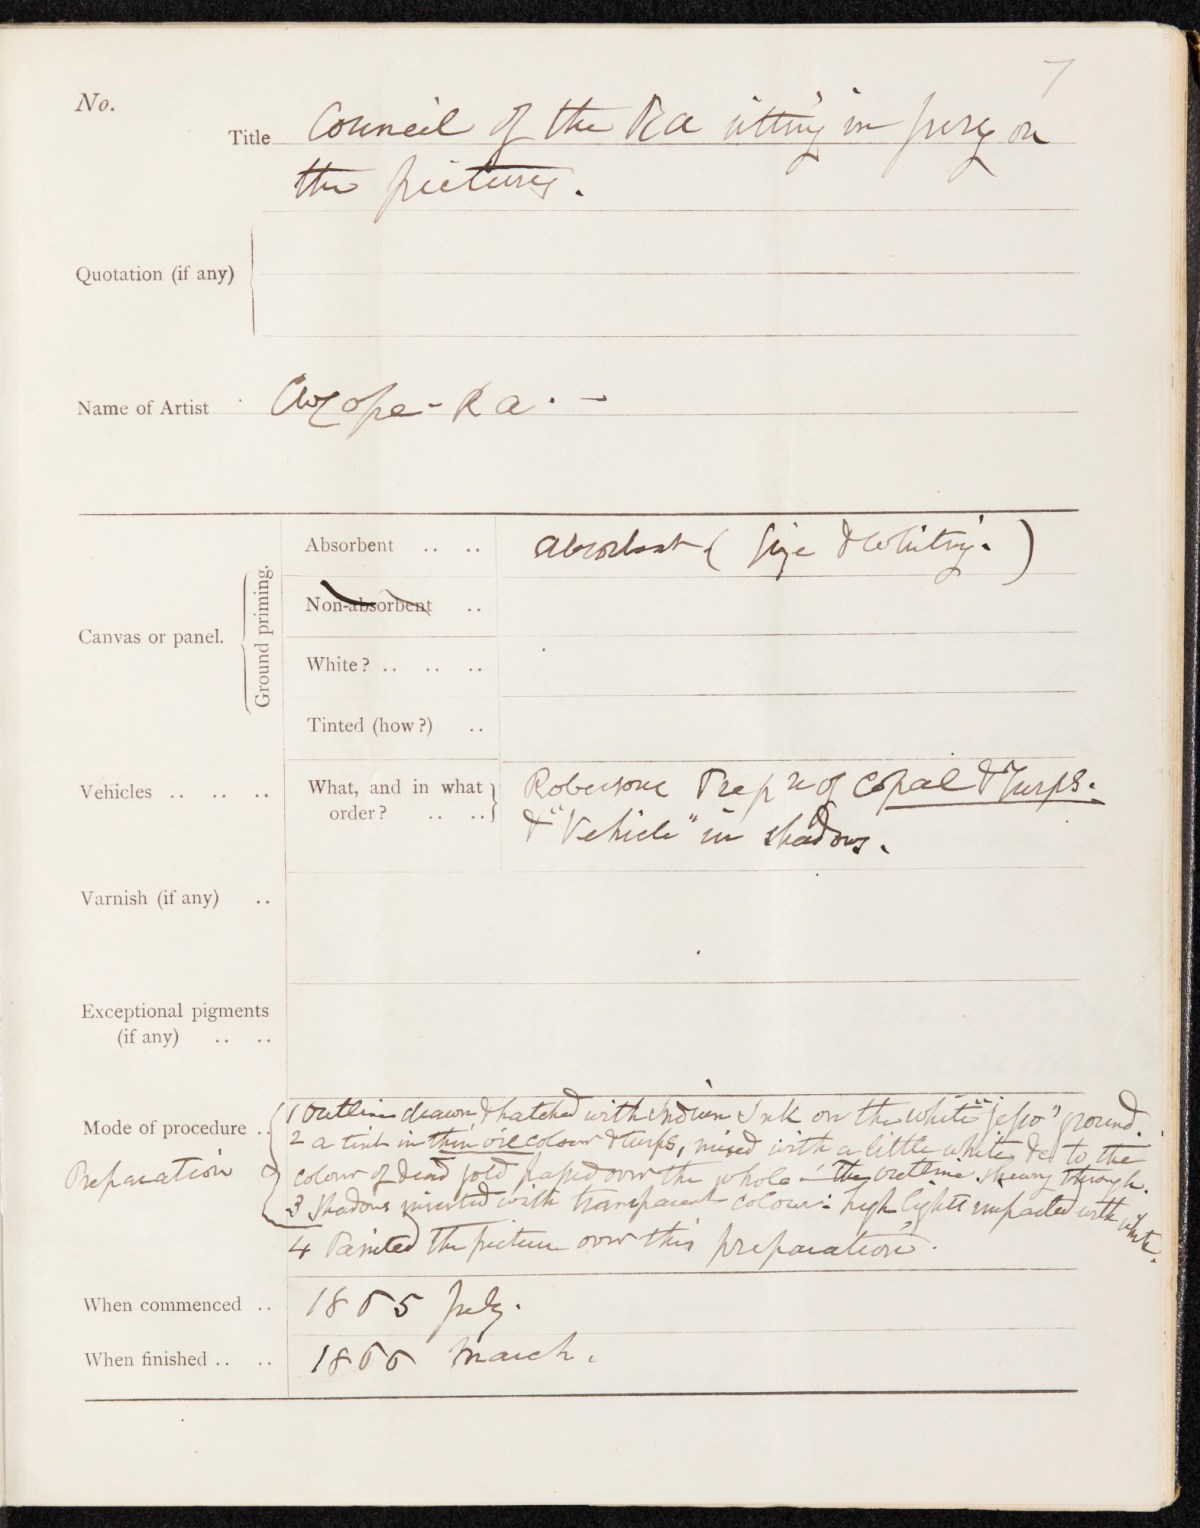 7
No.
Title Council of the Ra sitting in jury on
the pictures.
Quotation (if any)
Name of Artist CWCope - Ra. -
Canvas or panel. Ground priming. Absorbent .. .. absorbent (size & whiting.)
Non-absorbent ..
White? .. .. ..
Tinted (how?) ..
Vehicles .. .. .. What, and in what Robersons Prepn of Copal & Turps.
order? .. .. & "Vehicle" in shadows.
Varnish (if any) ..
Exceptional pigments
(if any) .. ..
Mode of procedure .. 1 Outline drawn & hatched with Indian Ink on the white "jesso" ground.
2 a tint in thin oil colour & turps, mixed with a little white &c to the
Preparation colour of dead gold passed over the whole - the outline shewing through.
3 Shadows inserted with transparent colour: high lights impasted with white.
4 Painted the picture over this "preparation".
When commenced .. 1865 July.
When finished .. .. 1866 March.